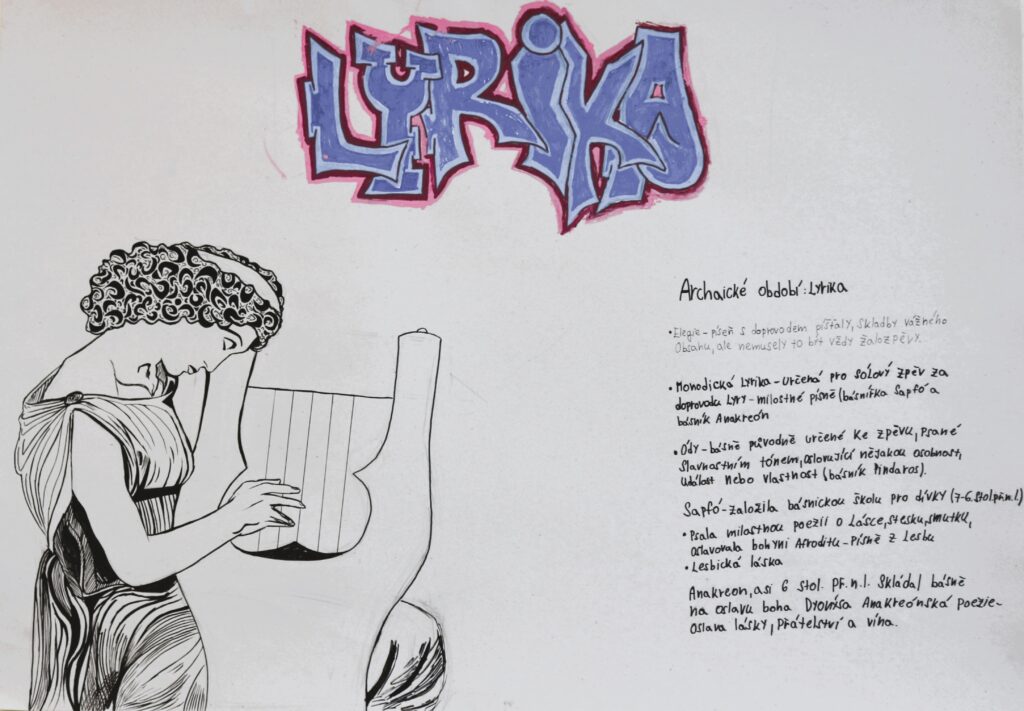 LYRiKA
Archaické období: Lyrika
• Elegie – píseň s doprovodem píšťaly, skladby vážného
Obsahu, ale nemusely to být vždy žalozpěvy.
• Monodická Lyrika – Určená pro sólový zpěv za
doprovodu Lyry – milostné písně (básnířka Sapfó a
básník Anakreón
• Ódy – básně původně určené ke zpěvu, psané
Slavnostním tónem, oslovující nějakou osobnost,
událost nebo vlastnost (básník Pindaros).
Sapfó – založila básnickou školu pro dívky (7-6. stol. př. n. l)
• Psala milostnou poezii o Lásce, stesku, smutku,
oslavovala bohyni Afroditu – Písně z Lesbu
• Lesbická láska
Anakreon, asi 6 stol. Př. n. l. Skládal básně
na oslavu boha Dyonísa Anakreónská poezie –
Oslava lásky, Přátelství a vína.